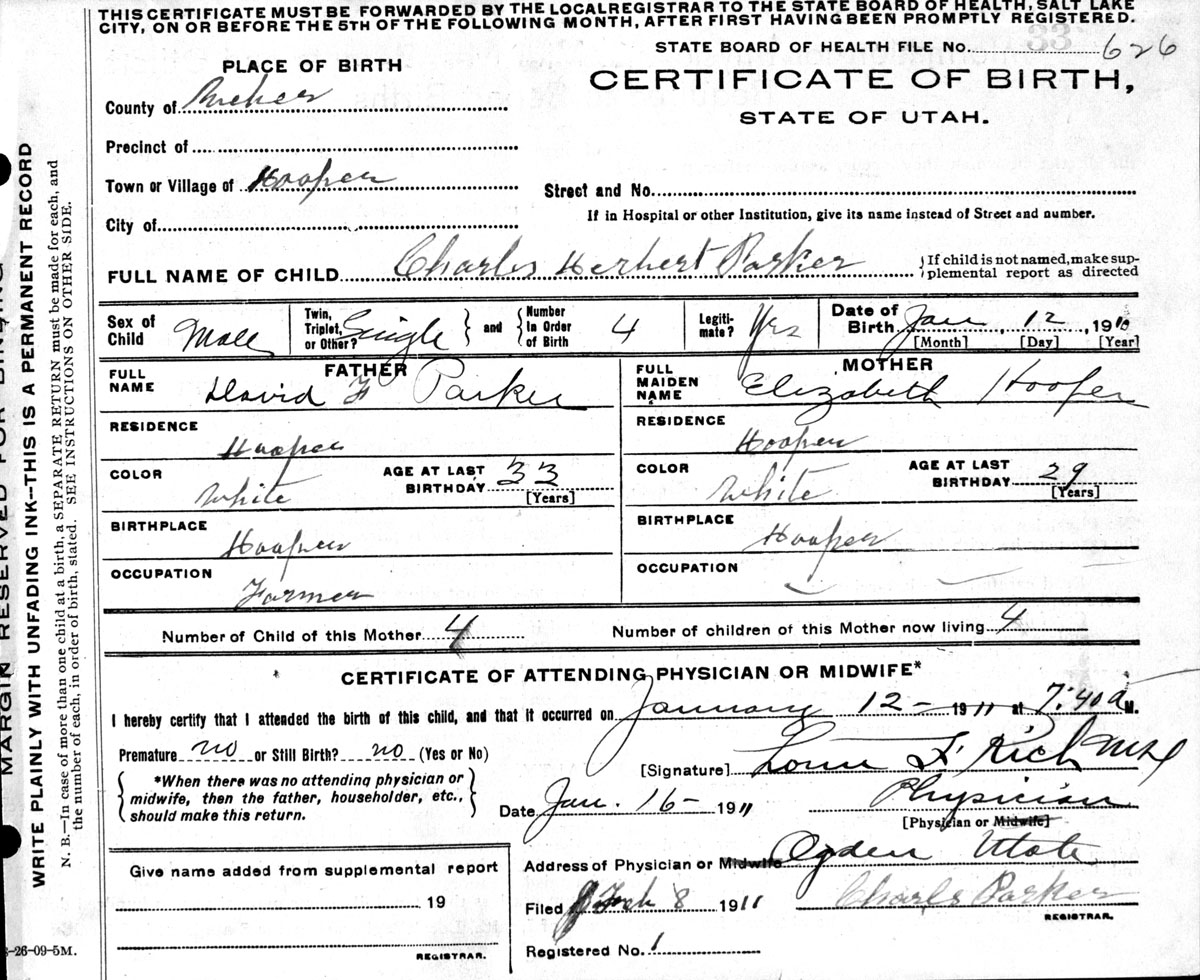 THIS CERTIFICATE MUST BE FORWARDED BY THE LOCAL REGISTRAR TO THE STATE BOARD OF HEALTH, SALT LAKE
CITY, ON OR BEFORE THE 5TH OF THE FOLLOWING MONTH, AFTER FIRST HAVING BEEN PROMPTLY REGISTERED.
STATE BOARD OF HEALTH FILE No. 33 626
PLACE OF BIRTH
CERTIFICATE OF BIRTH,
STATE OF UTAH.
County of
Precinct of
Town or Village of Hooper
Street and No.
If in Hospital or other Institution, give its name instead of Street and number.
City of
FULL NAME OF CHILD Charles Herbert Parker
{If child is not named, make sup-
plemental report as directed
Sex of Child Male
Twin, Triplet, or Other? Single } and { Number in Order of Birth 4
Legiti-mate? Yes
Date of Birth Jan 12, 1910
[Month] [Day] [Year]
FATHER
FULL NAME David F Parker
MOTHER
FULL MAIDEN NAME Elizabeth Hooper
RESIDENCE Hooper
RESIDENCE Hooper
COLOR White
AGE AT LAST BIRTHDAY 33
[Years]
COLOR White
AGE AT LAST BIRTHDAY 29
[Years]
BIRTHPLACE Hooper
BIRTHPLACE Hooper
OCCUPATION Farmer
OCCUPATION
Number of Child of this Mother 4
Number of children of this Mother now living 4
CERTIFICATE OF ATTENDING PHYSICIAN OR MIDWIFE*
I hereby certify that I attended the birth of this child, and that it occurred on January 12 - 1911 at 7:40 a M.
Premature no or Still Birth? no (Yes or No)
[Signature] F. Rich MD
{ *When there was no attending physician or
midwife, then the father, householder, etc.,
should make this return. }
Date Jan. 16 - 1911
Physician
[Physician or Midwife]
Address of Physician or Midwife Ogden Utah
Give name added from supplemental report
19
REGISTRAR.
Filed Feb 8 1911
Charls Parker
REGISTRAR.
Registered No. 1
-26-09-5M.
MARGIN RESERVED FOR BINDING
WRITE PLAINLY WITH UNFADING INK—THIS IS A PERMANENT RECORD
N. B.—In case of more than one child at a birth, a SEPARATE RETURN must be made for each, and
the number of each, in order of birth, stated. SEE INSTRUCTIONS ON OTHER SIDE.